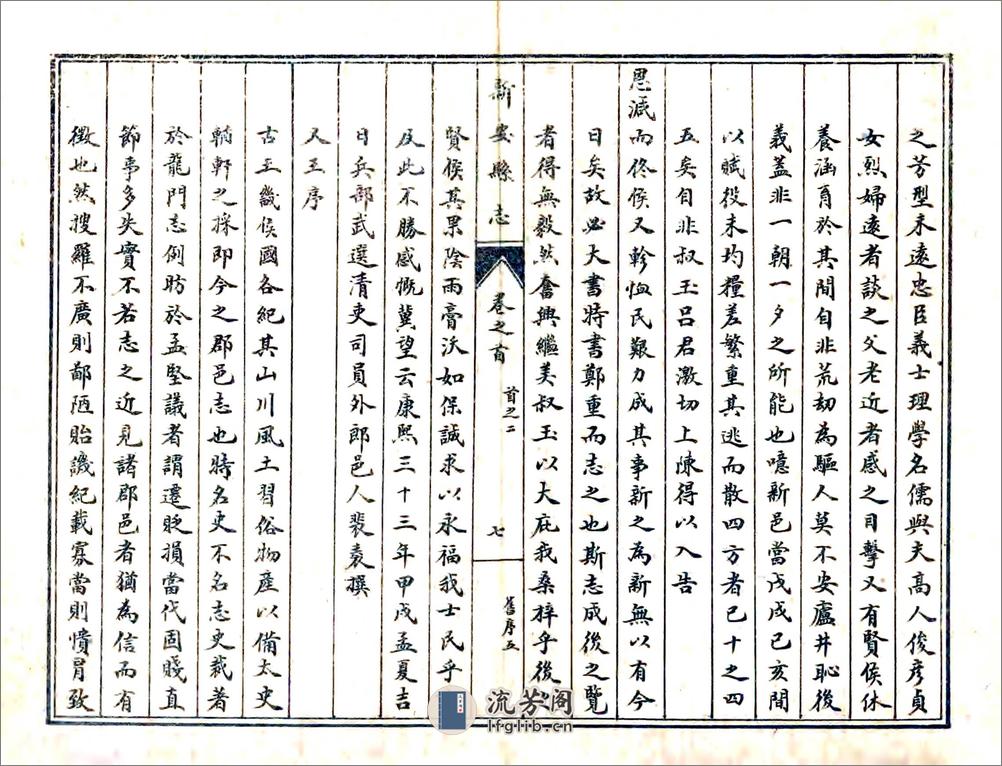 之芳型未遠忠臣義士理學名儒與夫高人俊彥貞
女烈婦遠者談之父老近者感之目擊又有賢侯休
養涵育於其間自非荒劫為驅人莫不安廬井恥後
義蓋非一朝一夕之所能也噫新邑當戊戌己亥間
以賦役未均糧差繁重其逃而散四方者已十之四
五矣自非叔玉呂君激切上陳得以入告
恩減而佟侯又軫恤民艱力成其事新之為新無以有今
日矣故必大書特書鄭重而志之也斯志成後之覽
者得無毅然奮興繼美叔玉以大庇我桑梓乎後
新安縣志
卷之首
首之二
七
舊序五
賢侯其果陰雨膏沃如保誠求以永福我士民乎
及此不勝感慨冀望云康熙三十三年甲戌孟夏吉
日兵部武選清吏司員外郎邑人裴袠撰
又王序
古王畿侯國各紀其山川風土習俗物產以備太史
輶軒之採即今之郡邑志也特名史不名志史裁著
於龍門志例昉於孟堅議者謂遷貶損當代固賤直
節事多失實不若志之近見諸郡邑者猶為信而有
徵也然搜羅不廣則鄙陋貽譏紀載寡當則憒冒致
流芳阁
lfglib.cn